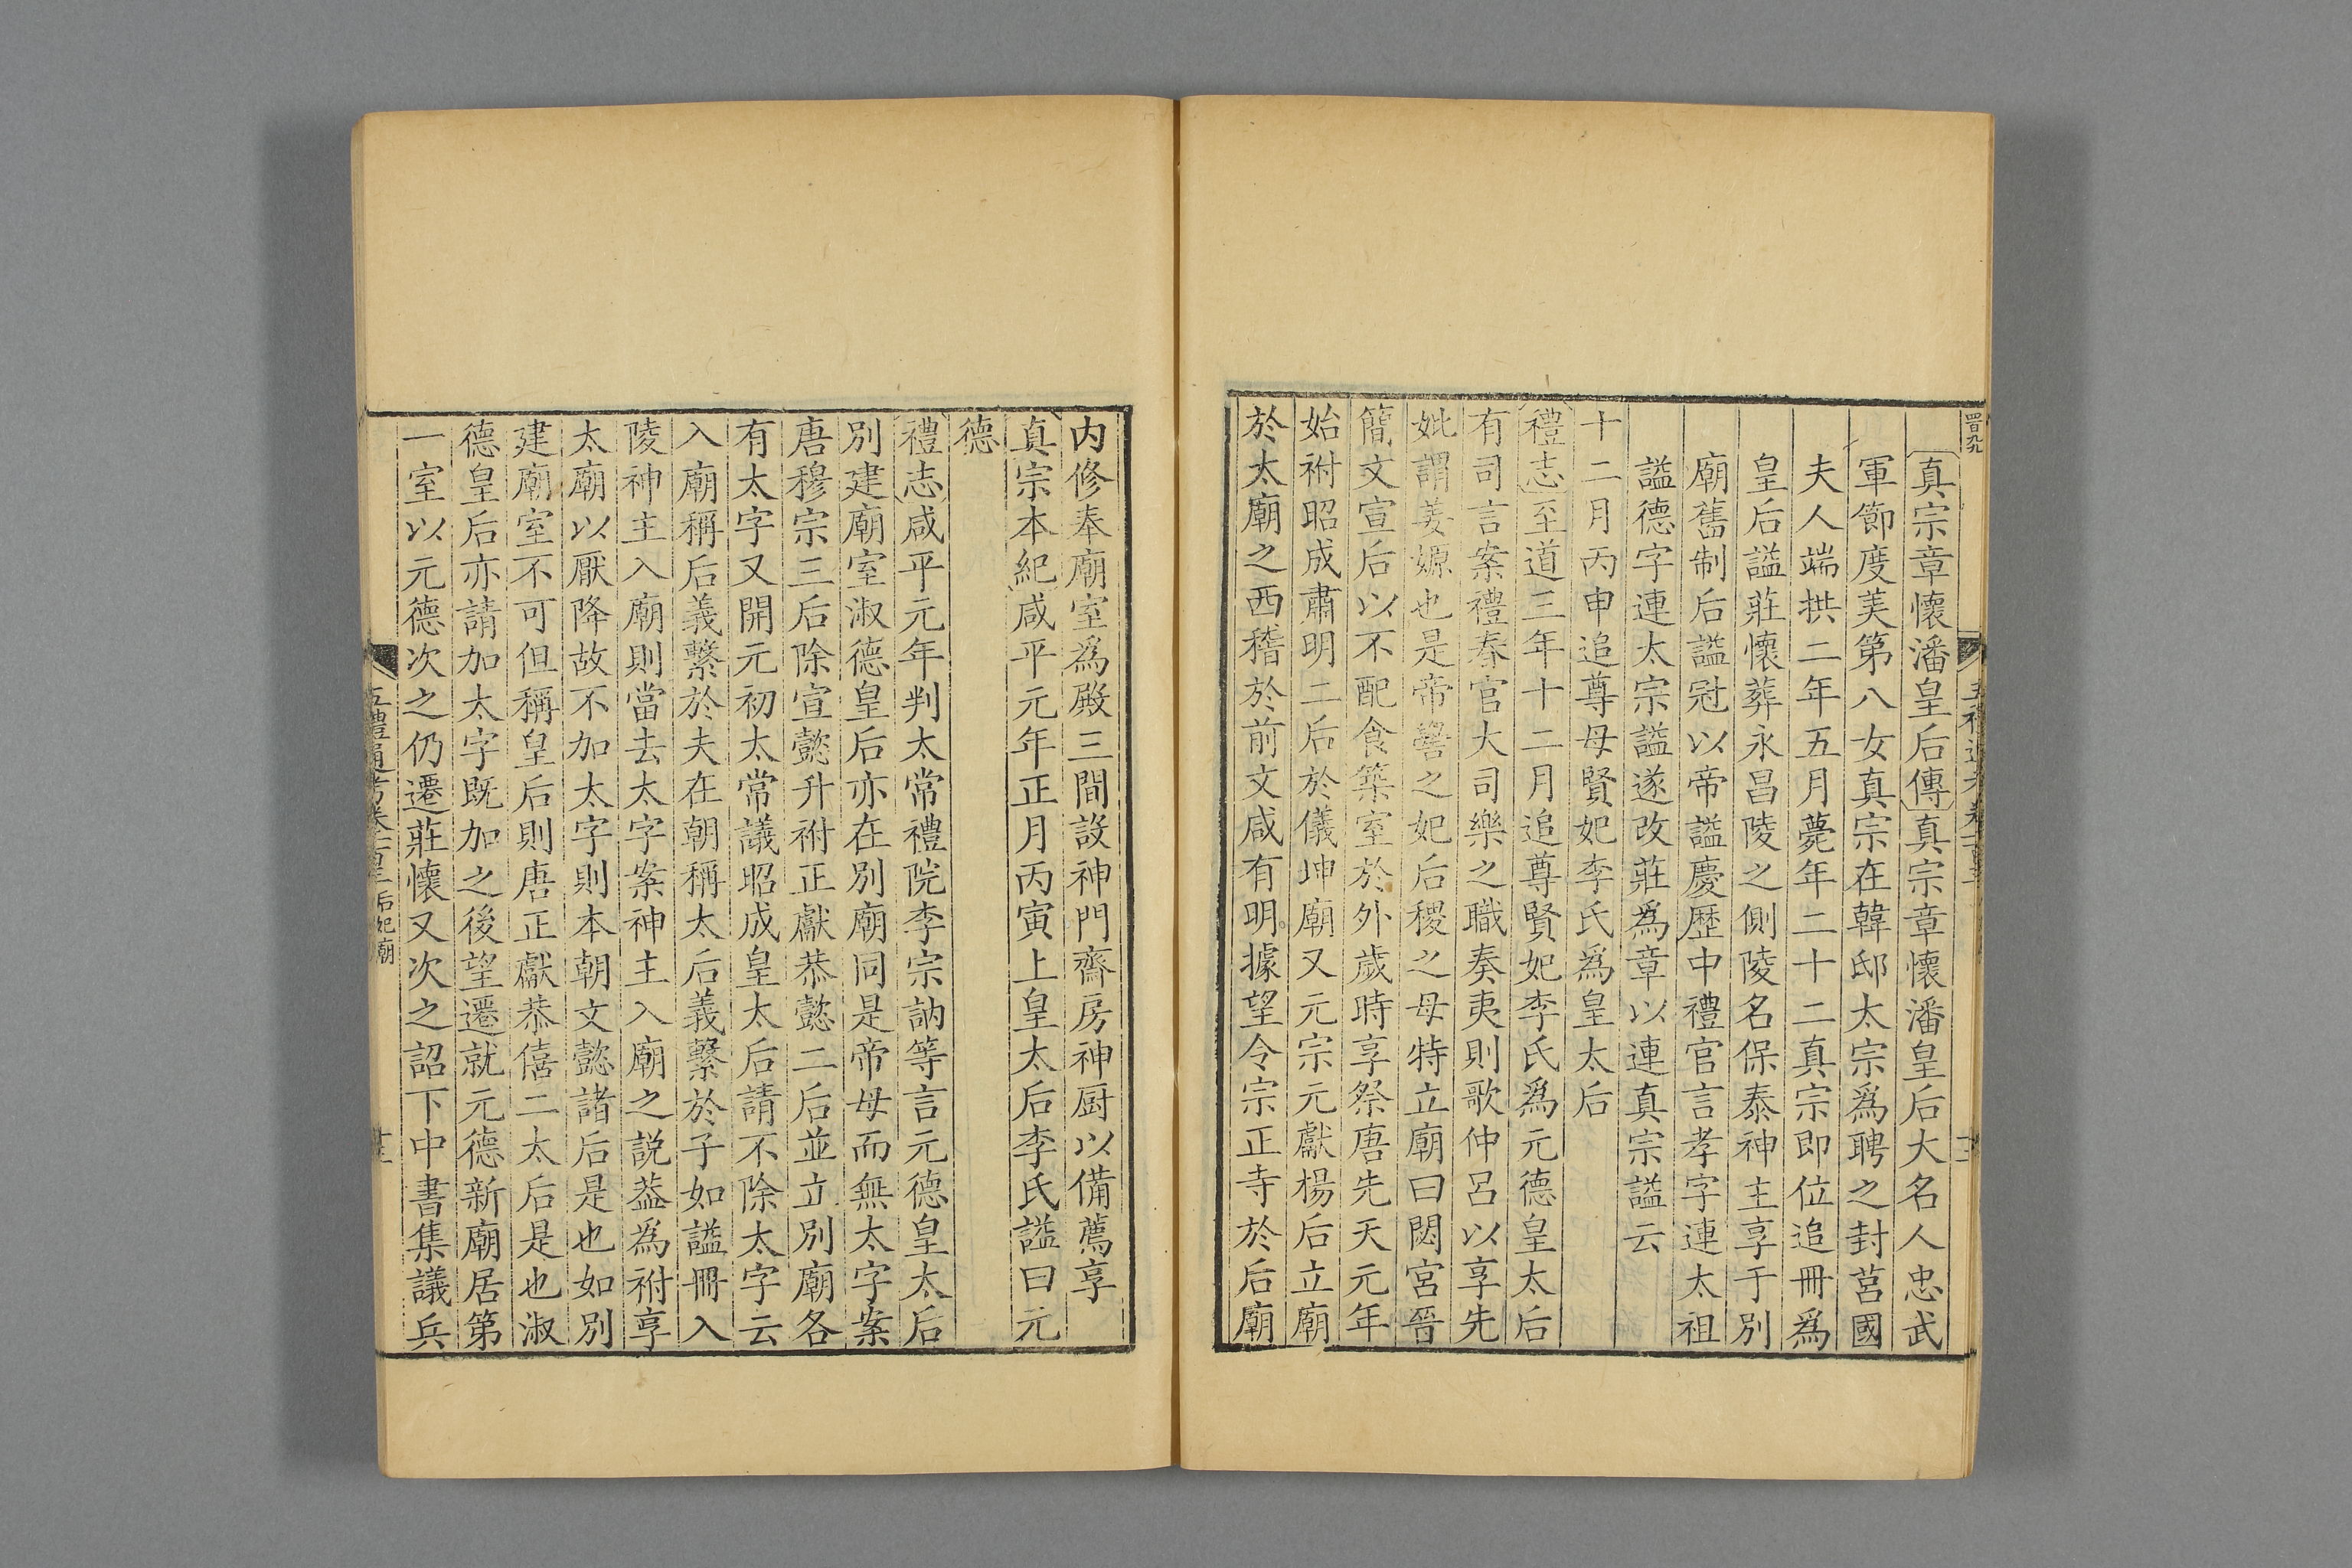 真宗章懷潘皇后傳真宗章懷潘皇后大名人忠武
軍節度美第八女真宗在韓邸太宗爲聘之封莒國
夫人端拱二年五月薨年二十二真宗即位追冊爲
皇后謚莊懷葬永昌陵之側陵名保泰神主享于別
廟舊制后謚冠以帝謚慶歷中禮官言孝字連太祖
謚德字連太宗謚遂改莊爲章以連真宗謚云
十二月丙申追尊母賢妃李氏爲皇太后
禮志至道三年十二月追尊賢妃李氏爲元德皇太后
有司言案禮春官大司樂之職奏夷則歌仲呂以享先
妣謂姜嫄也是帝嚳之妃后稷之母特立廟曰閟宮晉
簡文宣后以不配食築室於外歲時享祭唐先天元年
始祔昭成肅明二后於儀坤廟又元宗元獻楊后立廟
於太廟之西稽於前文咸有明據望令宗正寺於后廟
内修奉廟室爲殿三間設神門齋房神厨以備薦享
真宗本紀咸平元年正月丙寅上皇太后李氏謚曰元
德
禮志咸平元年判太常禮院李宗訥等言元德皇太后
別建廟室淑德皇后亦在別廟同是帝母而無太字案
唐穆宗三后除宣懿升祔正獻恭懿二后並立別廟各
有太字又開元初太常議昭成皇太后請不除太字云
入廟稱后義繫於夫在朝稱太后義繫於子如謚冊入
陵神主入廟則當去太字案神主入廟之説葢爲祔享
太廟以厭降故不加太字則本朝文懿諸后是也如別
建廟室不可但稱皇后則唐正獻恭僖二太后是也淑
德皇后亦請加太字既加之後望遷就元德新廟居第
一室以元德次之仍遷莊懷又次之詔下中書集議兵
后妃廟